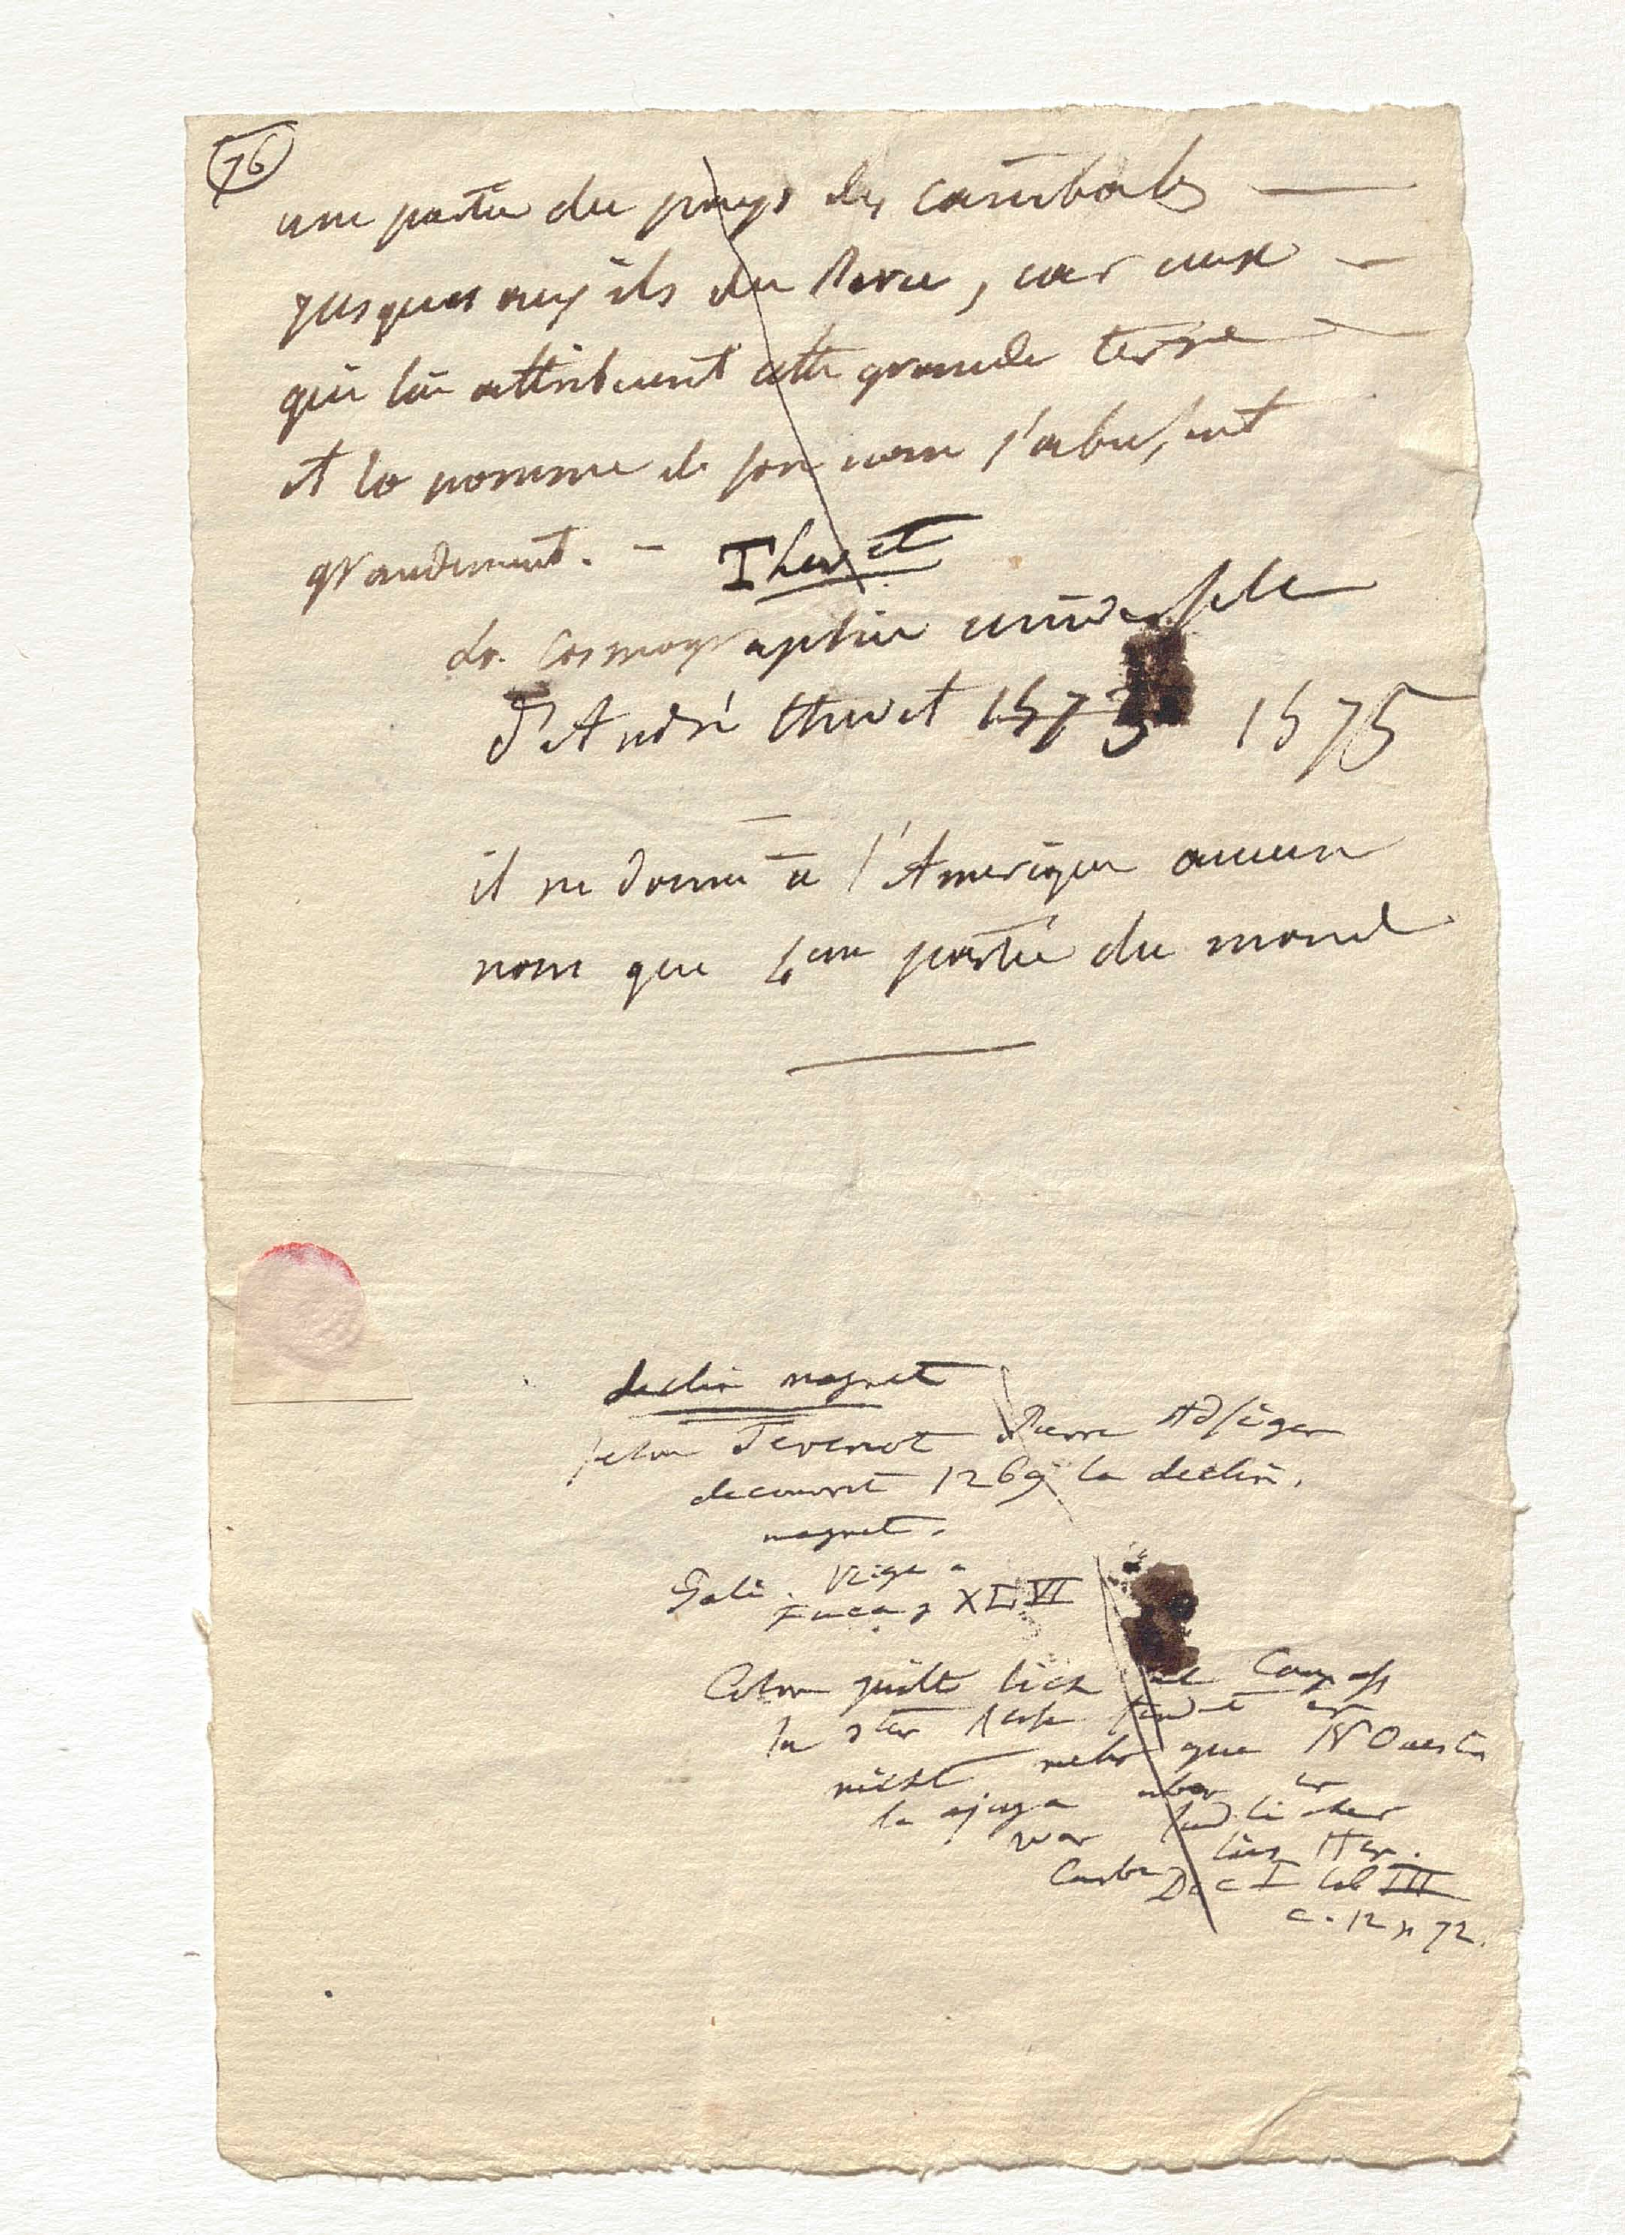 76
une partie du pays des canibales —
jusques aux isls du Peru, car ceux —
qui lui attribuent cette grande terre —
et la nomme de son nom s'abusent
grandement. — Thevet
La Cosmographie universelle
d'André Thevet 1573 1575
il ne donne à l'Amerique aucun
nom que 4eme partie du monde
declin magnet
selon Tevenot Pierre Adsiger
decouvrit 1269 la declin.
magnet.
Gali. Viage
Fuca p XLVI
Colon
nicht mehr que NOuest
la aguja aber er
war
Dec I lib III
c. 12 p 72.